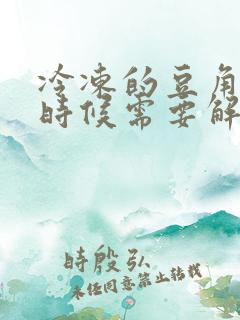 冷凍的豆角
時候需要解
時殷弘
未任同意禁止转载